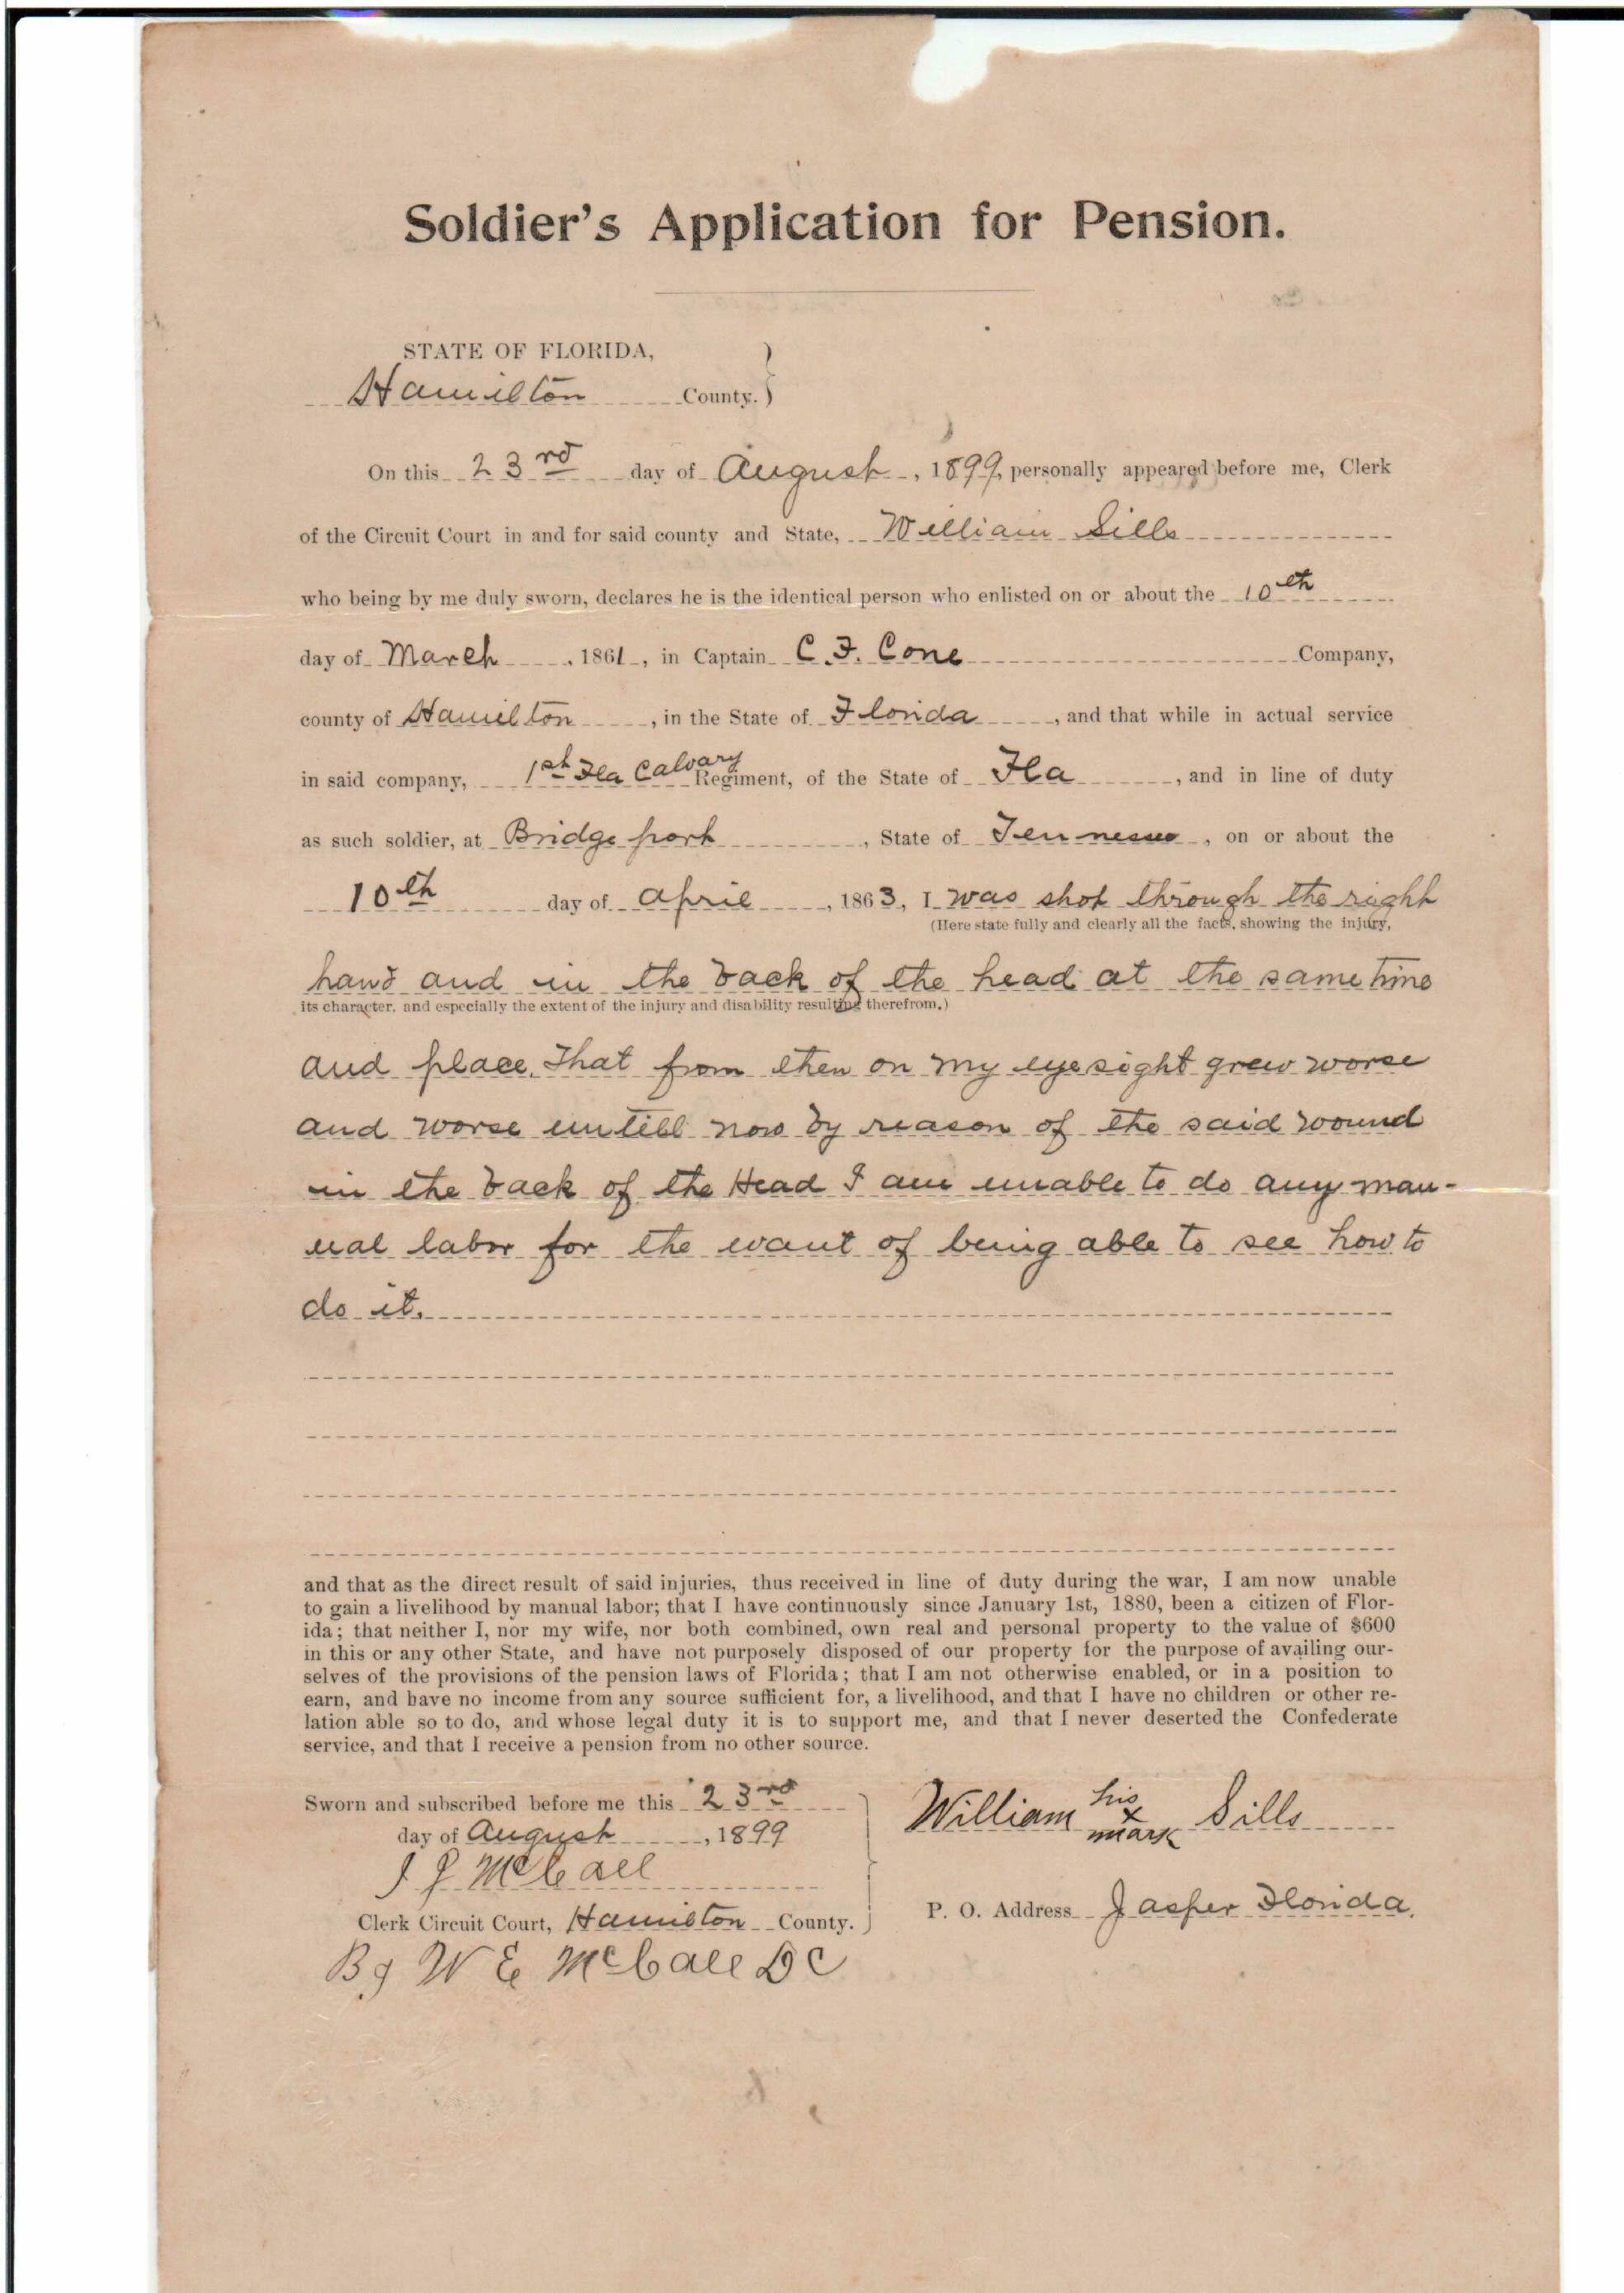 Soldier's Application for Pension.
STATE OF FLORIDA,
Hamilton County.
On this 23rd day of August, 1899, personally appeared before me, Clerk
of the Circuit Court in and for said county and State, William Sills
who being by me duly sworn, declares he is the identical person who enlisted on or about the 10th
day of March, 1861, in Captain C. F. Cone Company,
county of Hamilton, in the State of Florida, and that while in actual service
in said company, 1st Fla Calvary Regiment, of the State of Fla, and in line of duty
as such soldier, at Bridgeport, State of Tennessee, on or about the
10th day of April, 1863, I was shot through the right
(Here state fully and clearly all the facts, showing the injury,
hand and in the back of the head at the same time
its character, and especially the extent of the injury and disability resulting therefrom.)
and place. That from then on my eyesight grew worse
and worse untill now by reason of the said wound
in the back of the Head I am unable to do any man-
ual labor for the want of being able to see how to
do it.
and that as the direct result of said injuries, thus received in line of duty during the war, I am now unable
to gain a livelihood by manual labor; that I have continuously since January 1st, 1880, been a citizen of Flor-
ida; that neither I, nor my wife, nor both combined, own real and personal property to the value of $600
in this or any other State, and have not purposely disposed of our property for the purpose of availing our-
selves of the provisions of the pension laws of Florida; that I am not otherwise enabled, or in a position to
earn, and have no income from any source sufficient for, a livelihood, and that I have no children or other re-
lation able so to do, and whose legal duty it is to support me, and that I never deserted the Confederate
service, and that I receive a pension from no other source.
Sworn and subscribed before me this 23rd
day of August, 1899
J J McCall
Clerk Circuit Court, Hamilton County.
By W E McCall DC
William his x mark Sills
P. O. Address Jasper Florida.